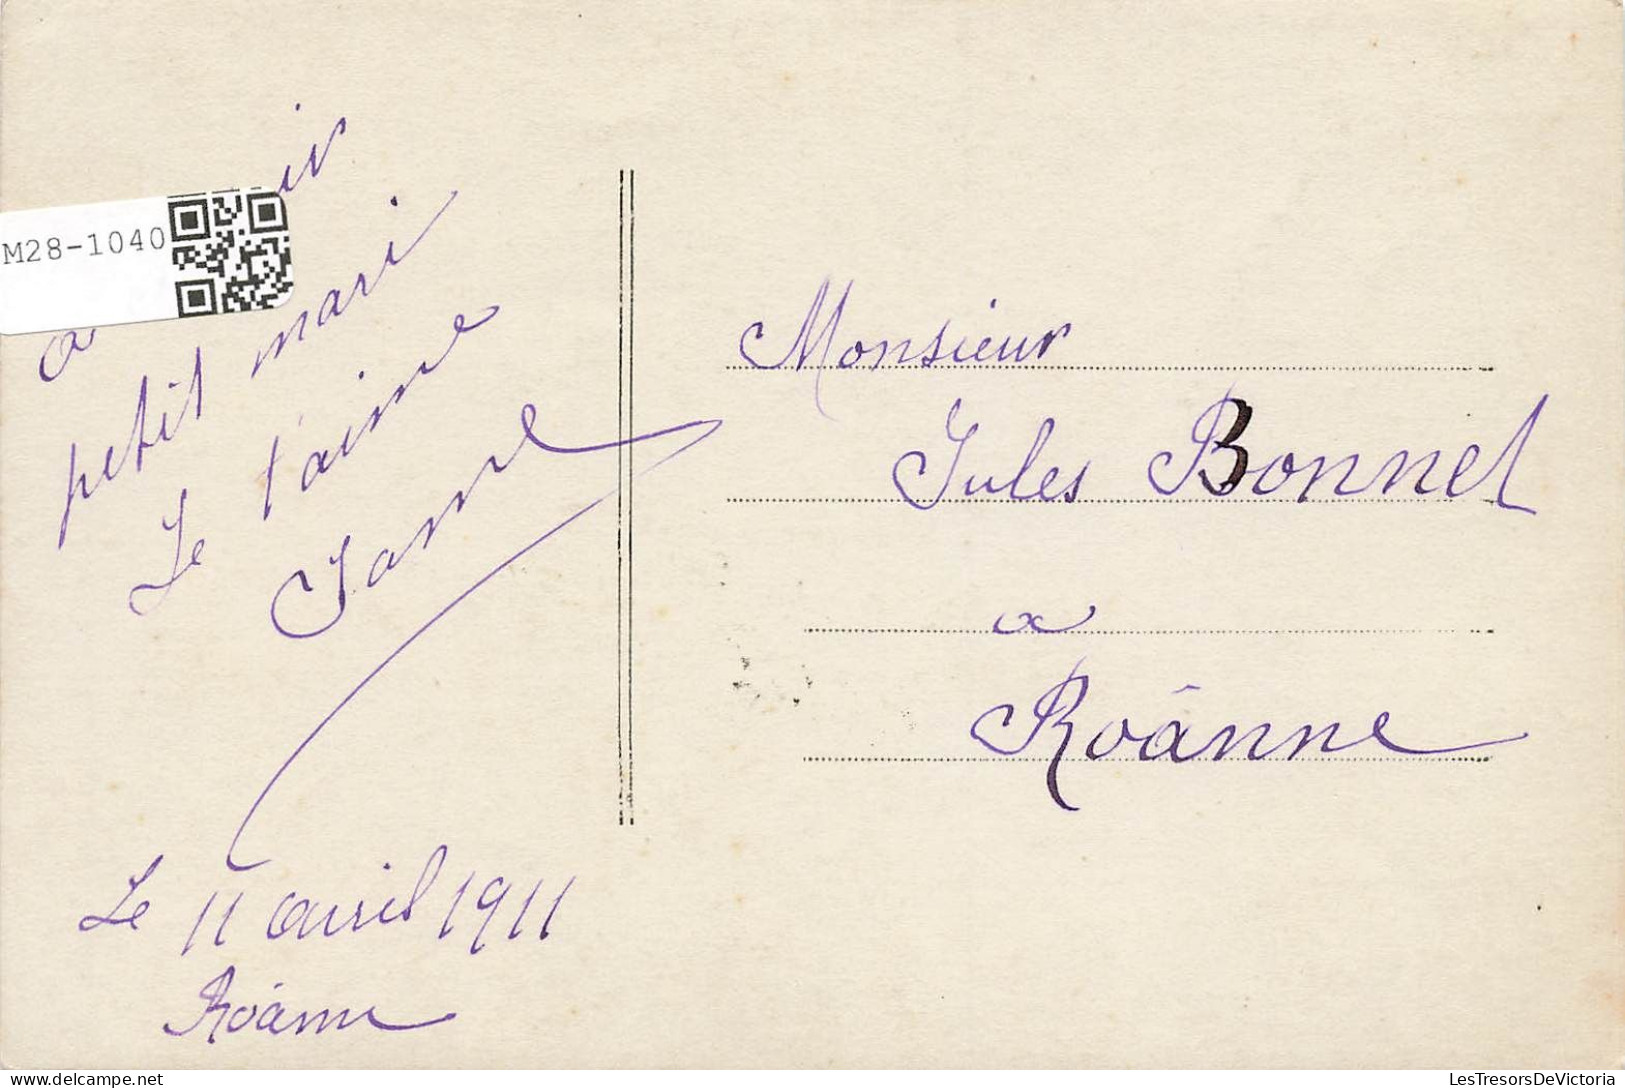 M28-1040
petit mari
Je t'aime
Jane
Le 11 avril 1911
Roanne
Monsieur
Jules Bonnet
a
Roânne
delcampe.net
LesTresorsDeVictoria